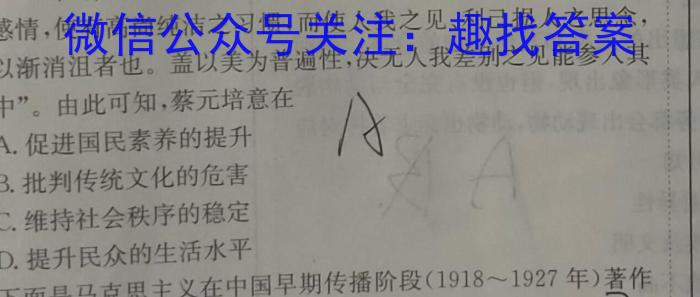 感情，使有高尚纯洁之习惯，而使人我之见、利己损人之思念，
微信公众号关注：趣找答案
以渐消沮者也。盖以美为普遍性，决无人我差别之见能参入其
中”。由此可知，蔡元培意在
A
A. 促进国民素养的提升
B. 批判传统文化的危害
C. 维持社会秩序的稳定
D. 提升民众的生活水平
下面是马克思主义在中国早期传播阶段(1918～1927年)著作